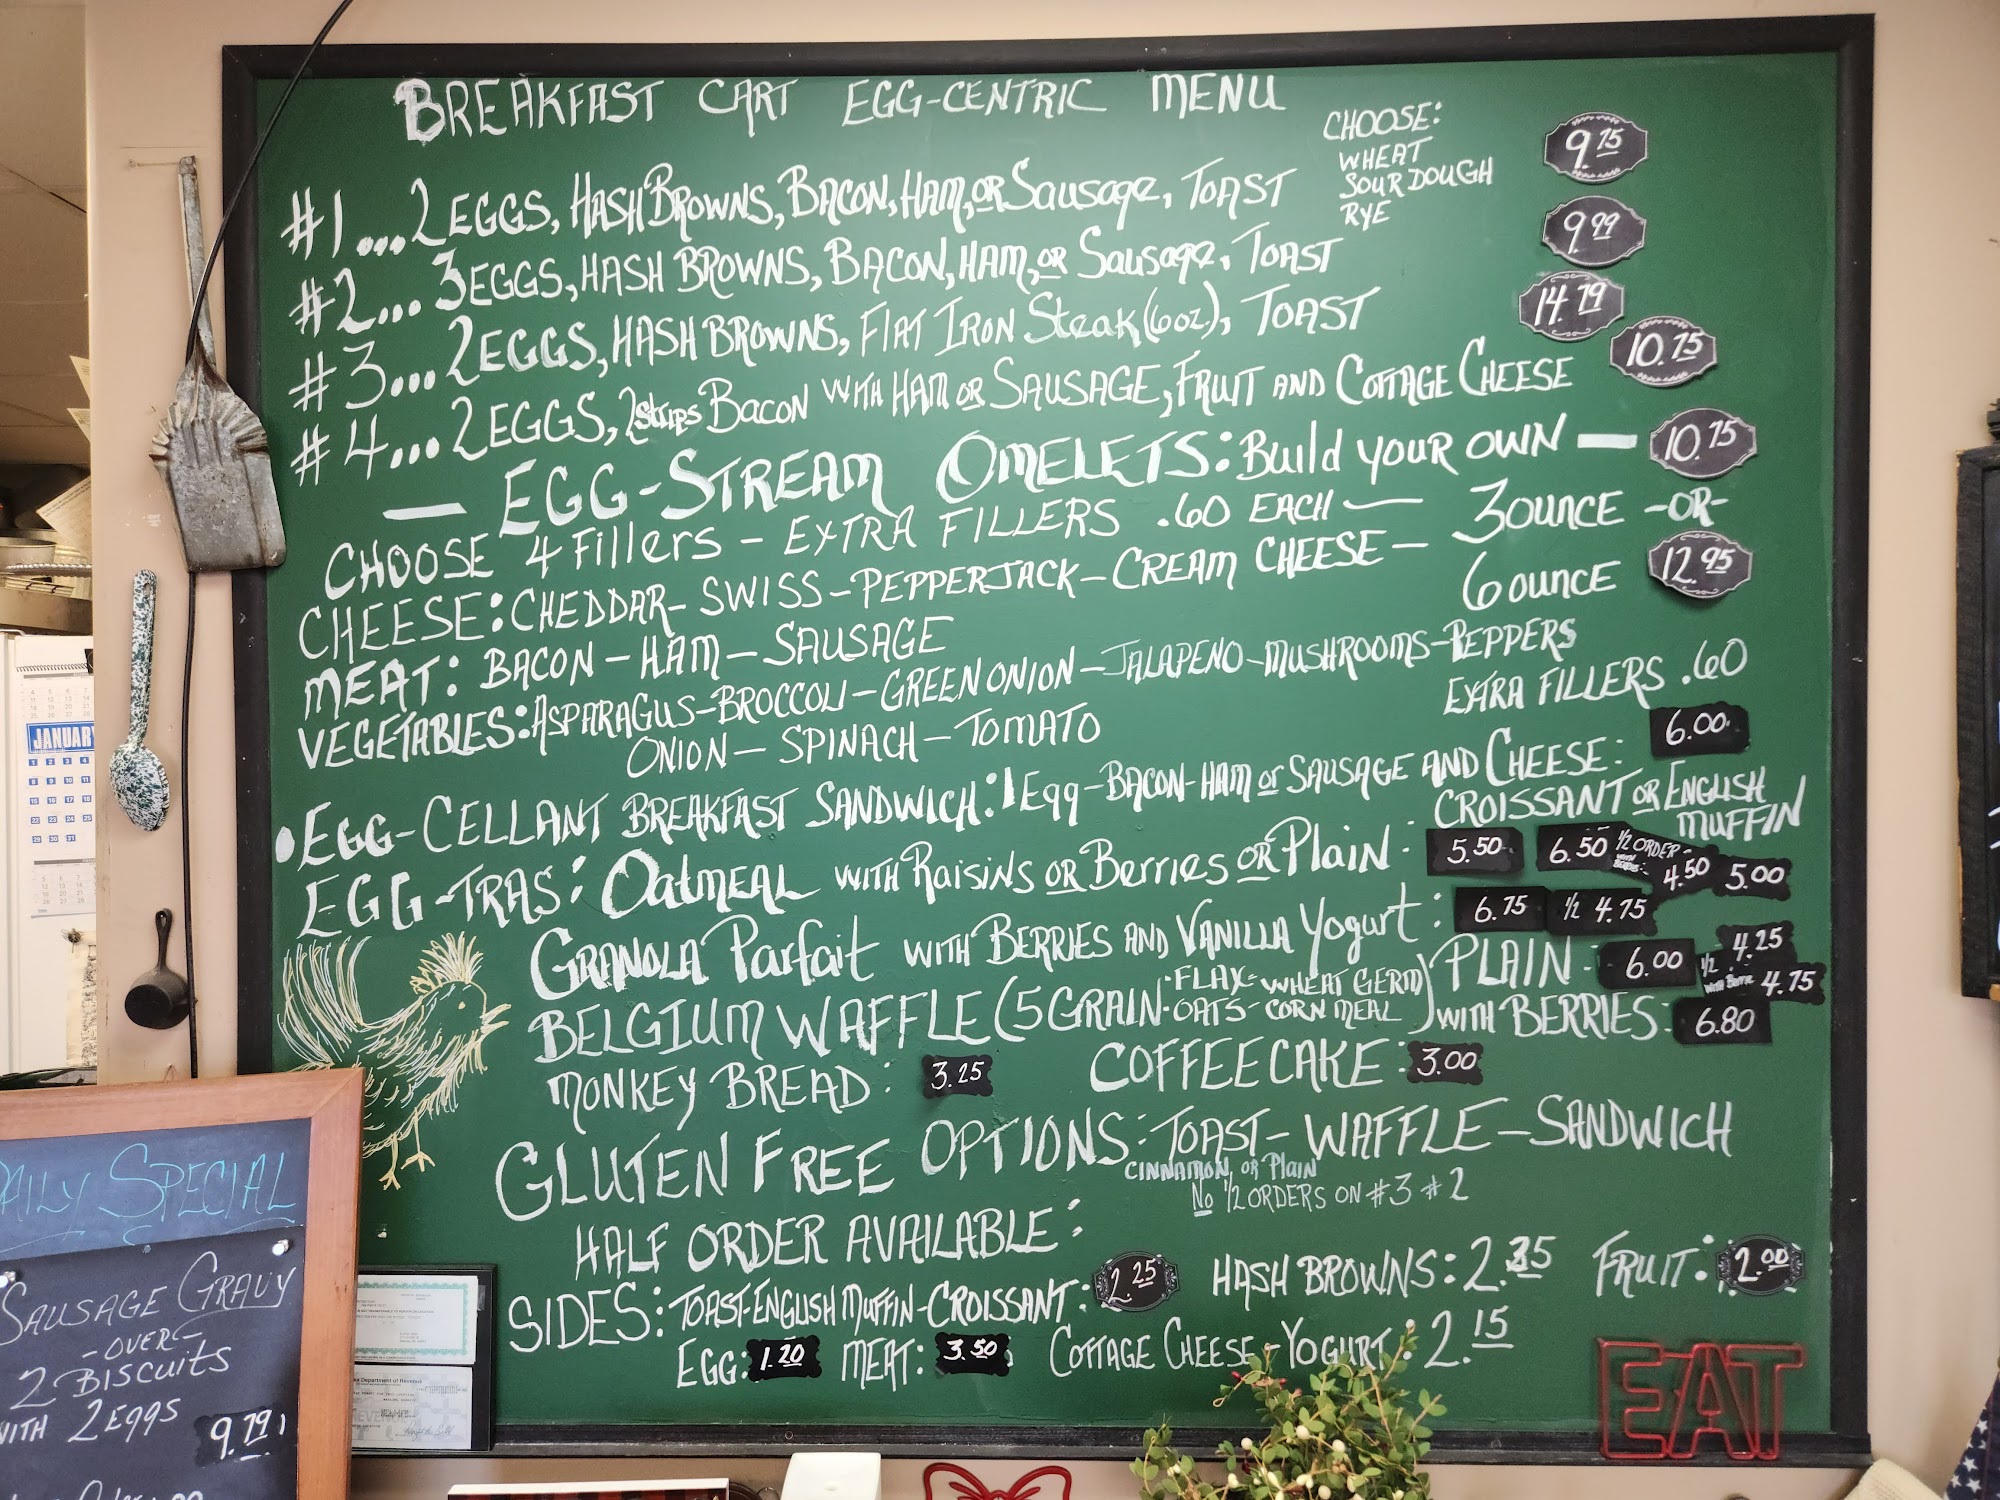 BREAKFAST CART EGG-CENTRIC MENU
CHOOSE:
WHEAT
SOURDOUGH
RYE
#1...2 EGGS, HASH BROWNS, BACON, HAM, OR SAUSAGE, TOAST 9.75
#2...3 EGGS, HASH BROWNS, BACON, HAM, OR SAUSAGE, TOAST 9.99
#3...2 EGGS, HASH BROWNS, FLAT IRON STEAK (6 oz.), TOAST 14.79
#4...2 EGGS, 2 STRIPS BACON WITH HAM OR SAUSAGE, FRUIT AND COTTAGE CHEESE 10.75
— EGG-STREAM OMELETS: BUILD YOUR OWN — 10.75
CHOOSE 4 FILLERS - EXTRA FILLERS .60 EACH — 3 OUNCE -OR-
CHEESE: CHEDDAR - SWISS - PEPPERJACK - CREAM CHEESE - 6 OUNCE 12.95
MEAT: BACON - HAM - SAUSAGE
VEGETABLES: ASPARAGUS - BROCCOLI - GREEN ONION - JALAPENO - MUSHROOMS - PEPPERS
ONION - SPINACH - TOMATO
EXTRA FILLERS .60
• EGG-CELLANT BREAKFAST SANDWICH: 1 EGG - BACON - HAM OR SAUSAGE AND CHEESE: 6.00
CROISSANT OR ENGLISH
MUFFIN
EGG-TRAS: OATMEAL WITH RAISINS OR BERRIES OR PLAIN: 5.50 6.50 1/2 ORDER 4.50 5.00
GRANOLA PARFAIT WITH BERRIES AND VANILLA YOGURT: 6.75 1/2 4.75
BELGIUM WAFFLE (5 GRAIN - FLAX - WHEAT GERM PLAIN - 6.00 1/2 4.25
OATS - CORN MEAL) WITH BERRIES: 6.80 4.75
MONKEY BREAD: 3.25 COFFEECAKE: 3.00
GLUTEN FREE OPTIONS: TOAST - WAFFLE - SANDWICH
CINNAMON, OR PLAIN
HALF ORDER AVAILABLE: NO 1/2 ORDERS ON #3 #2
SIDES: TOAST - ENGLISH MUFFIN - CROISSANT: 2.25 HASH BROWNS: 2.35 FRUIT: 2.00
EGG: 1.20 MEAT: 3.50 COTTAGE CHEESE - YOGURT: 2.15
EAT
DAILY SPECIAL
SAUSAGE GRAVY
-OVER-
2 BISCUITS
WITH 2 EGGS
9.79
JANUARY
Department of Revenue